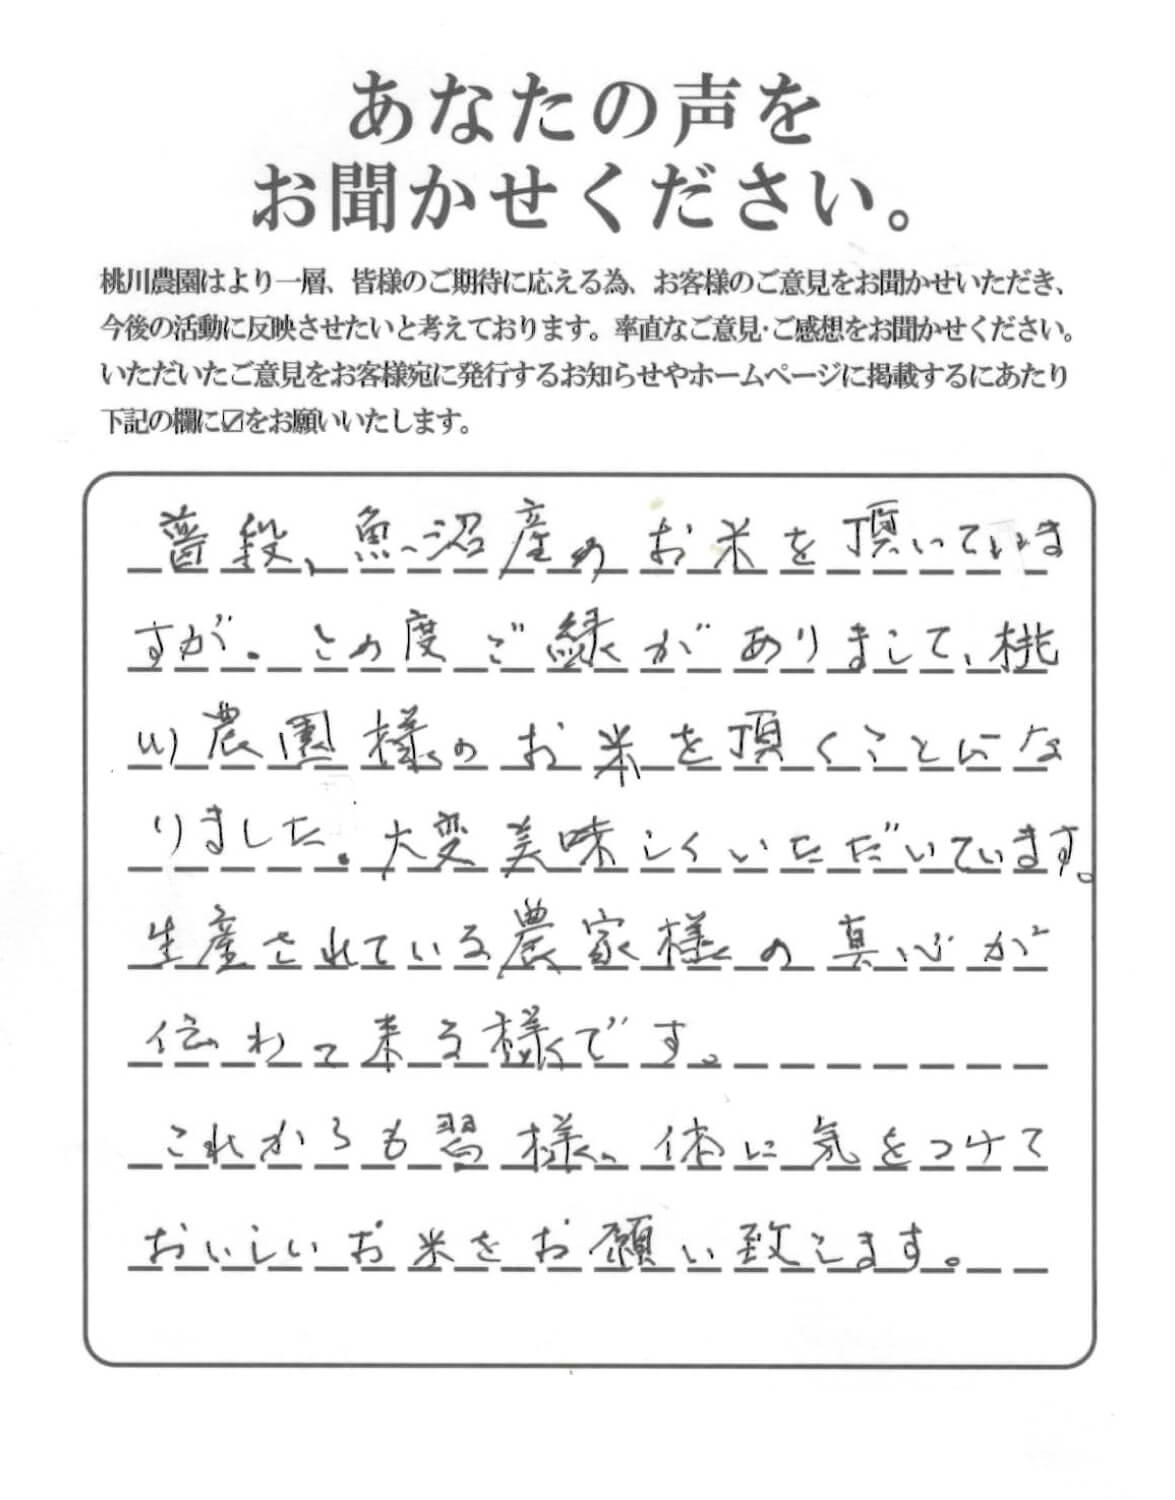 あなたの声を
お聞かせください。
桃川農園はより一層、皆様のご期待に応える為、お客様のご意見をお聞かせいただき、
今後の活動に反映させたいと考えております。率直なご意見・ご感想をお聞かせください。
いただいたご意見をお客様宛に発行するお知らせやホームページに掲載するにあたり
下記の欄に☑をお願いいたします。
普段、魚沼産のお米を頂いていま
すが。この度ご縁がありまして、桃
川農園様のお米を頂くことにな
りました。大変美味しくいただいています。
生産されている農家様の真心が
伝わって来る様です。
これからも皆様、体に気をつけて
おいしいお米をお願い致します。